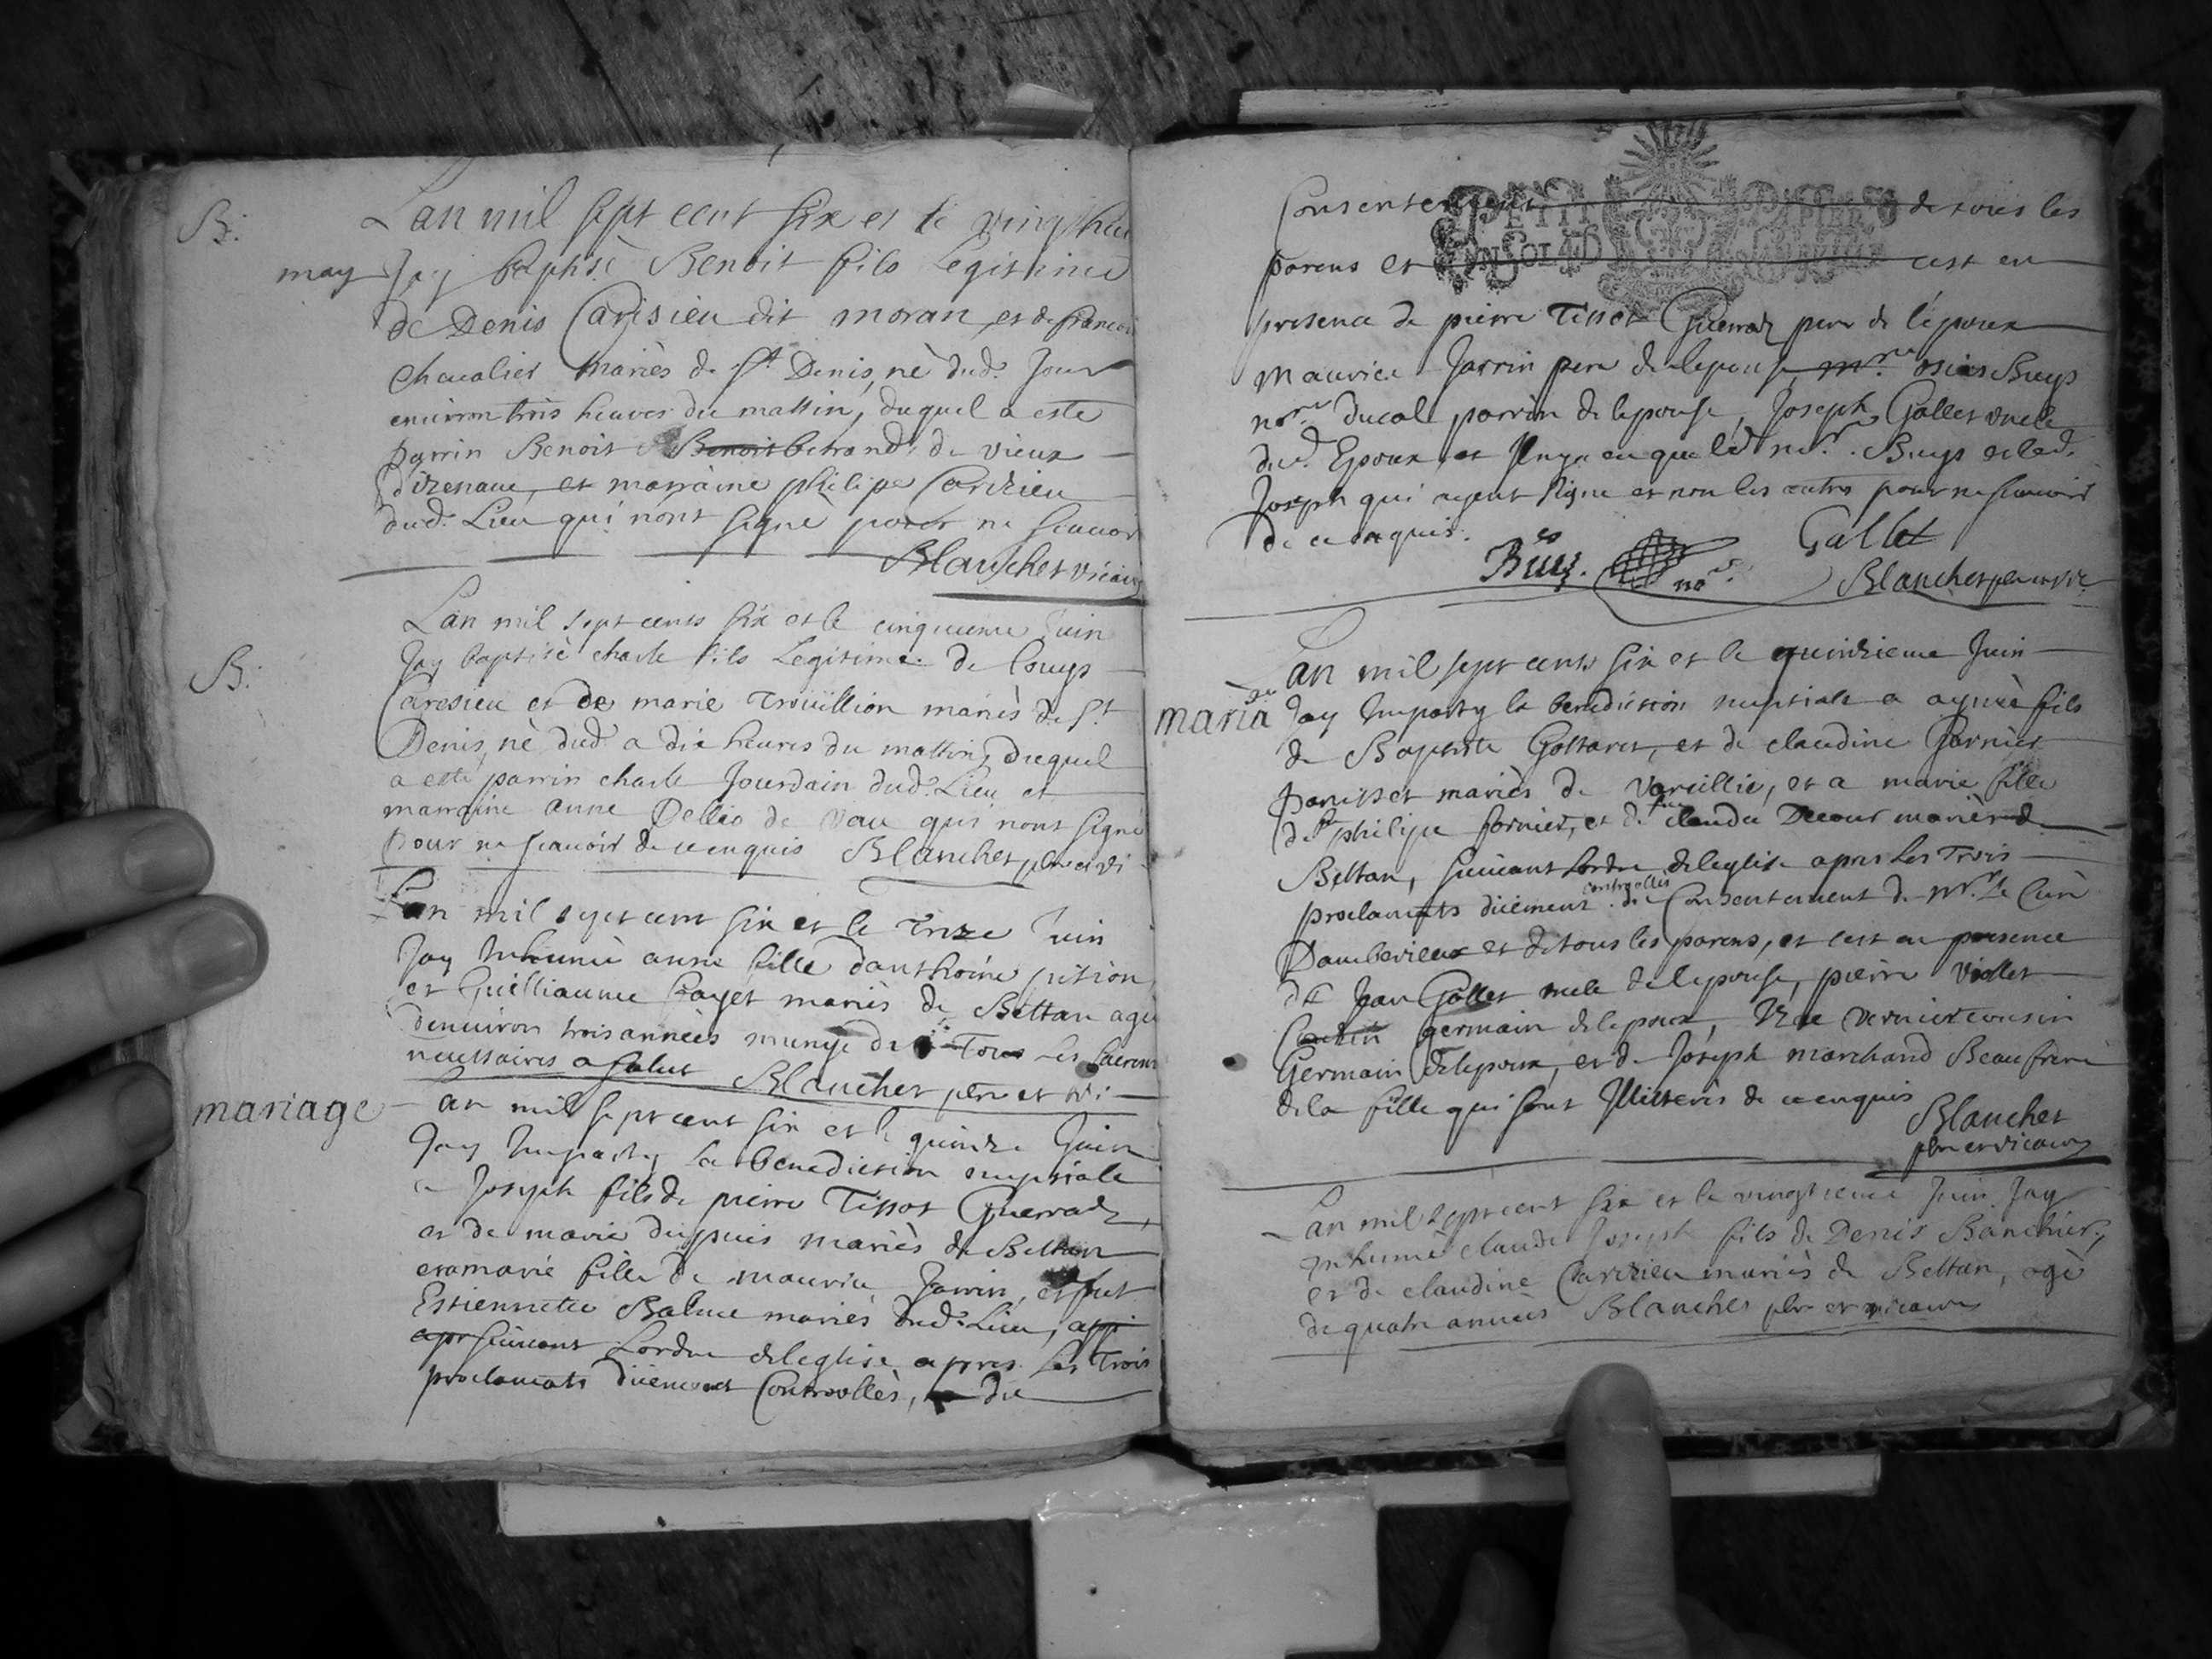 B.
Lan mil sept cent six et le vingt huit
may Jay baptisé Benoit fils Legitime
de Denis Carisieu dit moran et de francoi
Chevalier mariès de St Denis, nè dud. Jour
environ trois heures du mattin, duquel a esté
parrin Benoit Benoit betrand de vieux
d'izenaue, et marraine philipe Carizieu
dud. Lieu qui n'ont signè pour ne scauoir
Blanchet vicaire
B.
Lan mil sept cents six et le cinquieme Juin
Jay baptisè charle fils Legitime de Louys
Caresieu et de marie Trouillion mariès de St
Denis, nè dud. a dix heures du mattin, duquel
a esté parrin charle Jourdain dud. Lieu et
marraine anne Dellio de Vau qui nont signè
pour ne scauoir de ce enquis Blanchet pbre et vi
Lan mil sept cent six et le Treze Juin
Jay Inhumè anne fille d'anthoine pition
et Guilliaume Payet mariès de Bettan agee
denuiron trois annèes munye de Tous les sacrem
necessaires a salut Blanchet pbre et vi
mariage
Lan mil sept cent six et le quinze Juin
Jay Imparty la benediction nuptiale
a Joseph fils de pierre Tissot Guerraz
et de marie dupuis mariès de Bettan
et a marie fille de maurice Jarrin, et fut
Estiennette Balme mariès dud. Lieu, app
apr suiuant Lordre de leglise apres les Trois
proclamats düement Controollès, du
Consentement de tous les
parens et cest en
presence de pierre Tissot Guerraz pere de l'époux
Maurice Jarrin pere de lepouse, mre osias Buys
nore ducal parrin de lepouse, Joseph Gallet oncle
dud. Epoux, et Inya eu que led mr. Buys et led.
Joseph qui ayent signe et non les autres pour ne scauoir
de ce enquis.
Büis. nore. Gallet
Blanchet pbre et vic
mariage
Lan mil sept cents six et le quinzieme Juin
Jay Imparty la benediction nuptiale a aymè fils
de Baptiste Gottaret, et de claudine Garnier
panisset mariès de Vareillie, et a marie fille
de philipe fornier, et de feue claudee Decour mariès de
Bettan, suiuant Lordre de leglise apres Les Trois
proclamats düement controollès du Consentement de mr. Le Curè
Dambevieux et de tous les parens, et cest en presence
de Jean Gallet oncle de lepouse, pierre Viollet
Cousin germain de lepoux, Vernier cousin
Germain de lepoux, et de Joseph marchand Beaufrere
de la fille qui sont Illiterès de ce enquis
Blanchet
pbre et vicaire
Lan mil sept cent six et le vingtieme Juin Jay
Inhumè claude Joseph fils de Denis Banchier,
et de claudine Carizieu mariès de Bettan, agè
de quatre annèes Blanchet pbre et vicaire